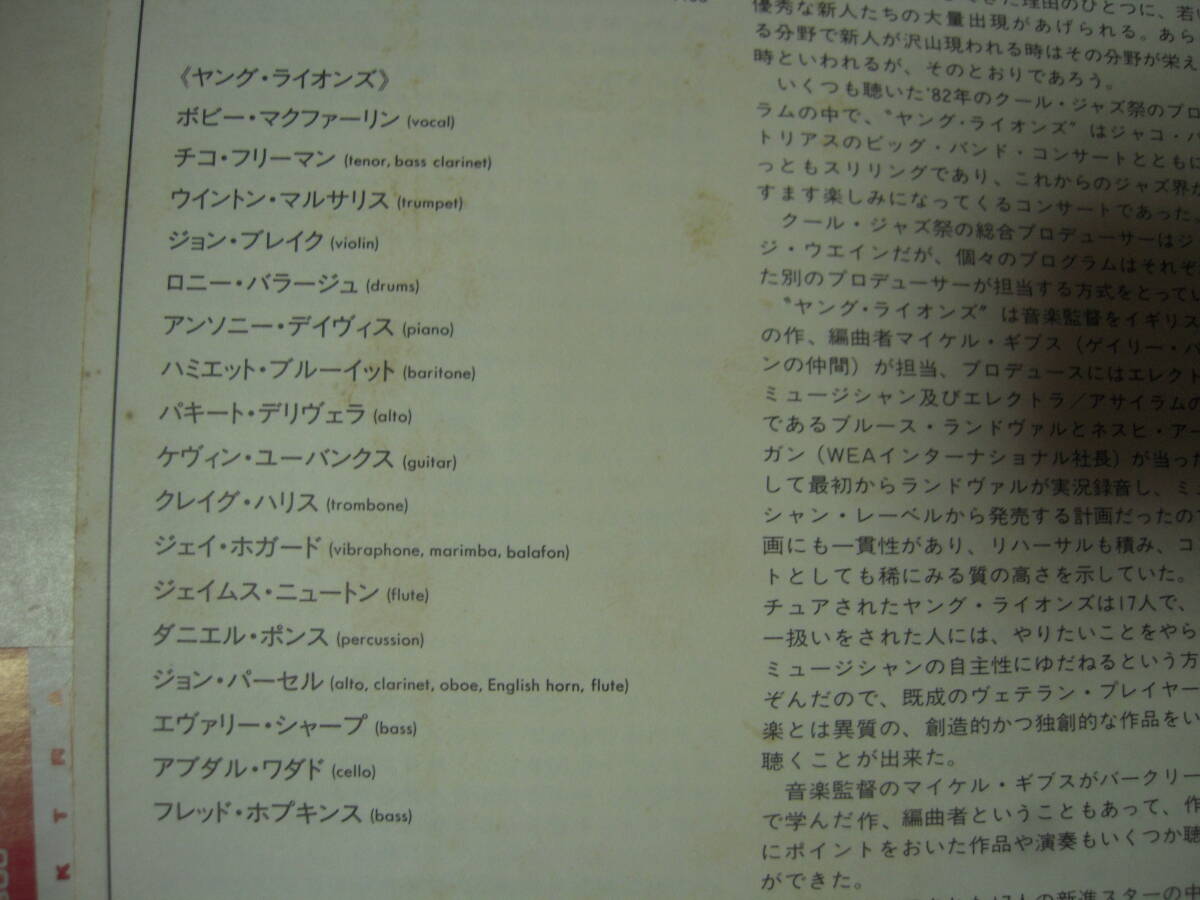 《ヤング・ライオンズ》
ボビー・マクファーリン (vocal)
チコ・フリーマン (tenor, bass clarinet)
ウイントン・マルサリス (trumpet)
ジョン・ブレイク (violin)
ロニー・バラージュ (drums)
アンソニー・デイヴィス (piano)
ハミエット・ブルーイット (baritone)
パキート・デリヴェラ (alto)
ケヴィン・ユーバンクス (guitar)
クレイグ・ハリス (trombone)
ジェイ・ホガード (vibraphone, marimba, balafon)
ジェイムス・ニュートン (flute)
ダニエル・ポンス (percussion)
ジョン・パーセル (alto, clarinet, oboe, English horn, flute)
エヴァリー・シャープ (bass)
アブダル・ワダド (cello)
フレッド・ホプキンス (bass)
きた理由のひとつに、若い
優秀な新人たちの大量出現があげられる。あら
る分野で新人が沢山現われる時はその分野が栄え
時といわれるが、そのとおりであろう。
いくつも聴いた'82年のクール・ジャズ祭のプロ
ラムの中で、〝ヤング・ライオンズ〟はジャコ・パ
トリアスのビッグ・バンド・コンサートとともに
っともスリリングであり、これからのジャズ界が
すます楽しみになってくるコンサートであった
クール・ジャズ祭の総合プロデューサーはジ
ジ・ウエインだが、個々のプログラムはそれぞ
た別のプロデューサーが担当する方式をとってい
〝ヤング・ライオンズ〟は音楽監督をイギリス
の作、編曲者マイケル・ギブス（ゲイリー・バ
ンの仲間）が担当、プロデュースにはエレクト
ミュージシャン及びエレクトラ／アサイラムの
であるブルース・ランドヴァルとネスヒ・アー
ガン（WEAインターナショナル社長）が当った
して最初からランドヴァルが実況録音し、ミュ
シャン・レーベルから発売する計画だったので
画にも一貫性があり、リハーサルも積み、コ
トとしても稀にみる質の高さを示していた。
チュアされたヤング・ライオンズは17人で、
一扱いをされた人には、やりたいことをやら
ミュージシャンの自主性にゆだねるという方
ぞんだので、既成のヴェテラン・プレイヤー
楽とは異質の、創造的かつ独創的な作品をい
聴くことが出来た。
音楽監督のマイケル・ギブスがバークリー
で学んだ作、編曲者ということもあって、作
にポイントをおいた作品や演奏もいくつか聴
ができた。
17人の新進スターの中
K T R A